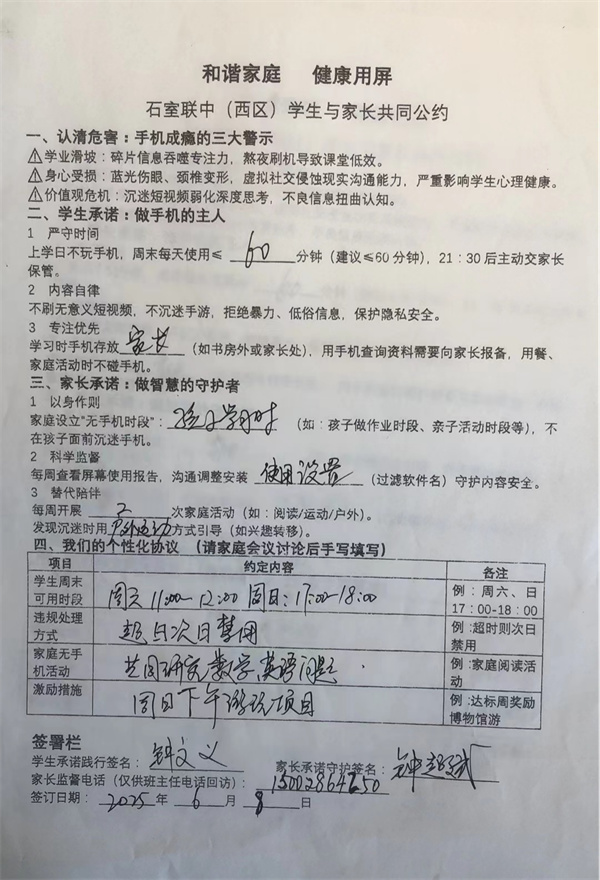 和谐家庭 健康用屏
石室联中（西区）学生与家长共同公约
一、认清危害：手机成瘾的三大警示
⚠学业滑坡：碎片信息吞噬专注力，熬夜刷机导致课堂低效。
⚠身心受损：蓝光伤眼、颈椎变形，虚拟社交侵蚀现实沟通能力，严重影响学生心理健康。
⚠价值观危机：沉迷短视频弱化深度思考，不良信息扭曲认知。
二、学生承诺：做手机的主人
1 严守时间
上学日不玩手机，周末每天使用≤ 60 分钟（建议≤60分钟），21：30后主动交家长
保管。
2 内容自律
不刷无意义短视频，不沉迷手游，拒绝暴力、低俗信息，保护隐私安全。
3 专注优先
学习时手机存放 家长 （如书房外或家长处），用手机查询资料需要向家长报备，用餐、
家庭活动时不碰手机。
三、家长承诺：做智慧的守护者
1 以身作则
家庭设立"无手机时段"：孩子学习时 （如：孩子做作业时段、亲子活动时段等），不
在孩子面前沉迷手机。
2 科学监督
每周查看屏幕使用报告，沟通调整安装 使用设置 （过滤软件名）守护内容安全。
3 替代陪伴
每周开展 2 次家庭活动（如：阅读/运动/户外）。
发现沉迷时用户外运动方式引导（如兴趣转移）。
四、我们的个性化协议 （请家庭会议讨论后手写填写）
项目 约定内容 备注
学生周末可用时段 周六 11:00-12:00 周日：17:00-18:00 例：周六、日17：00-18：00
违规处理方式 次日禁用 例：超时则次日禁用
家庭无手机活动 共同研究数学、英语问题 例：家庭阅读活动
激励措施 周日下午游玩项目 例：达标周奖励博物馆游
签署栏
学生承诺践行签名：钟文义 家长承诺守护签名：钟
家长监督电话（仅供班主任电话回访）：15002864650
签订日期：2025年 6 月 8 日